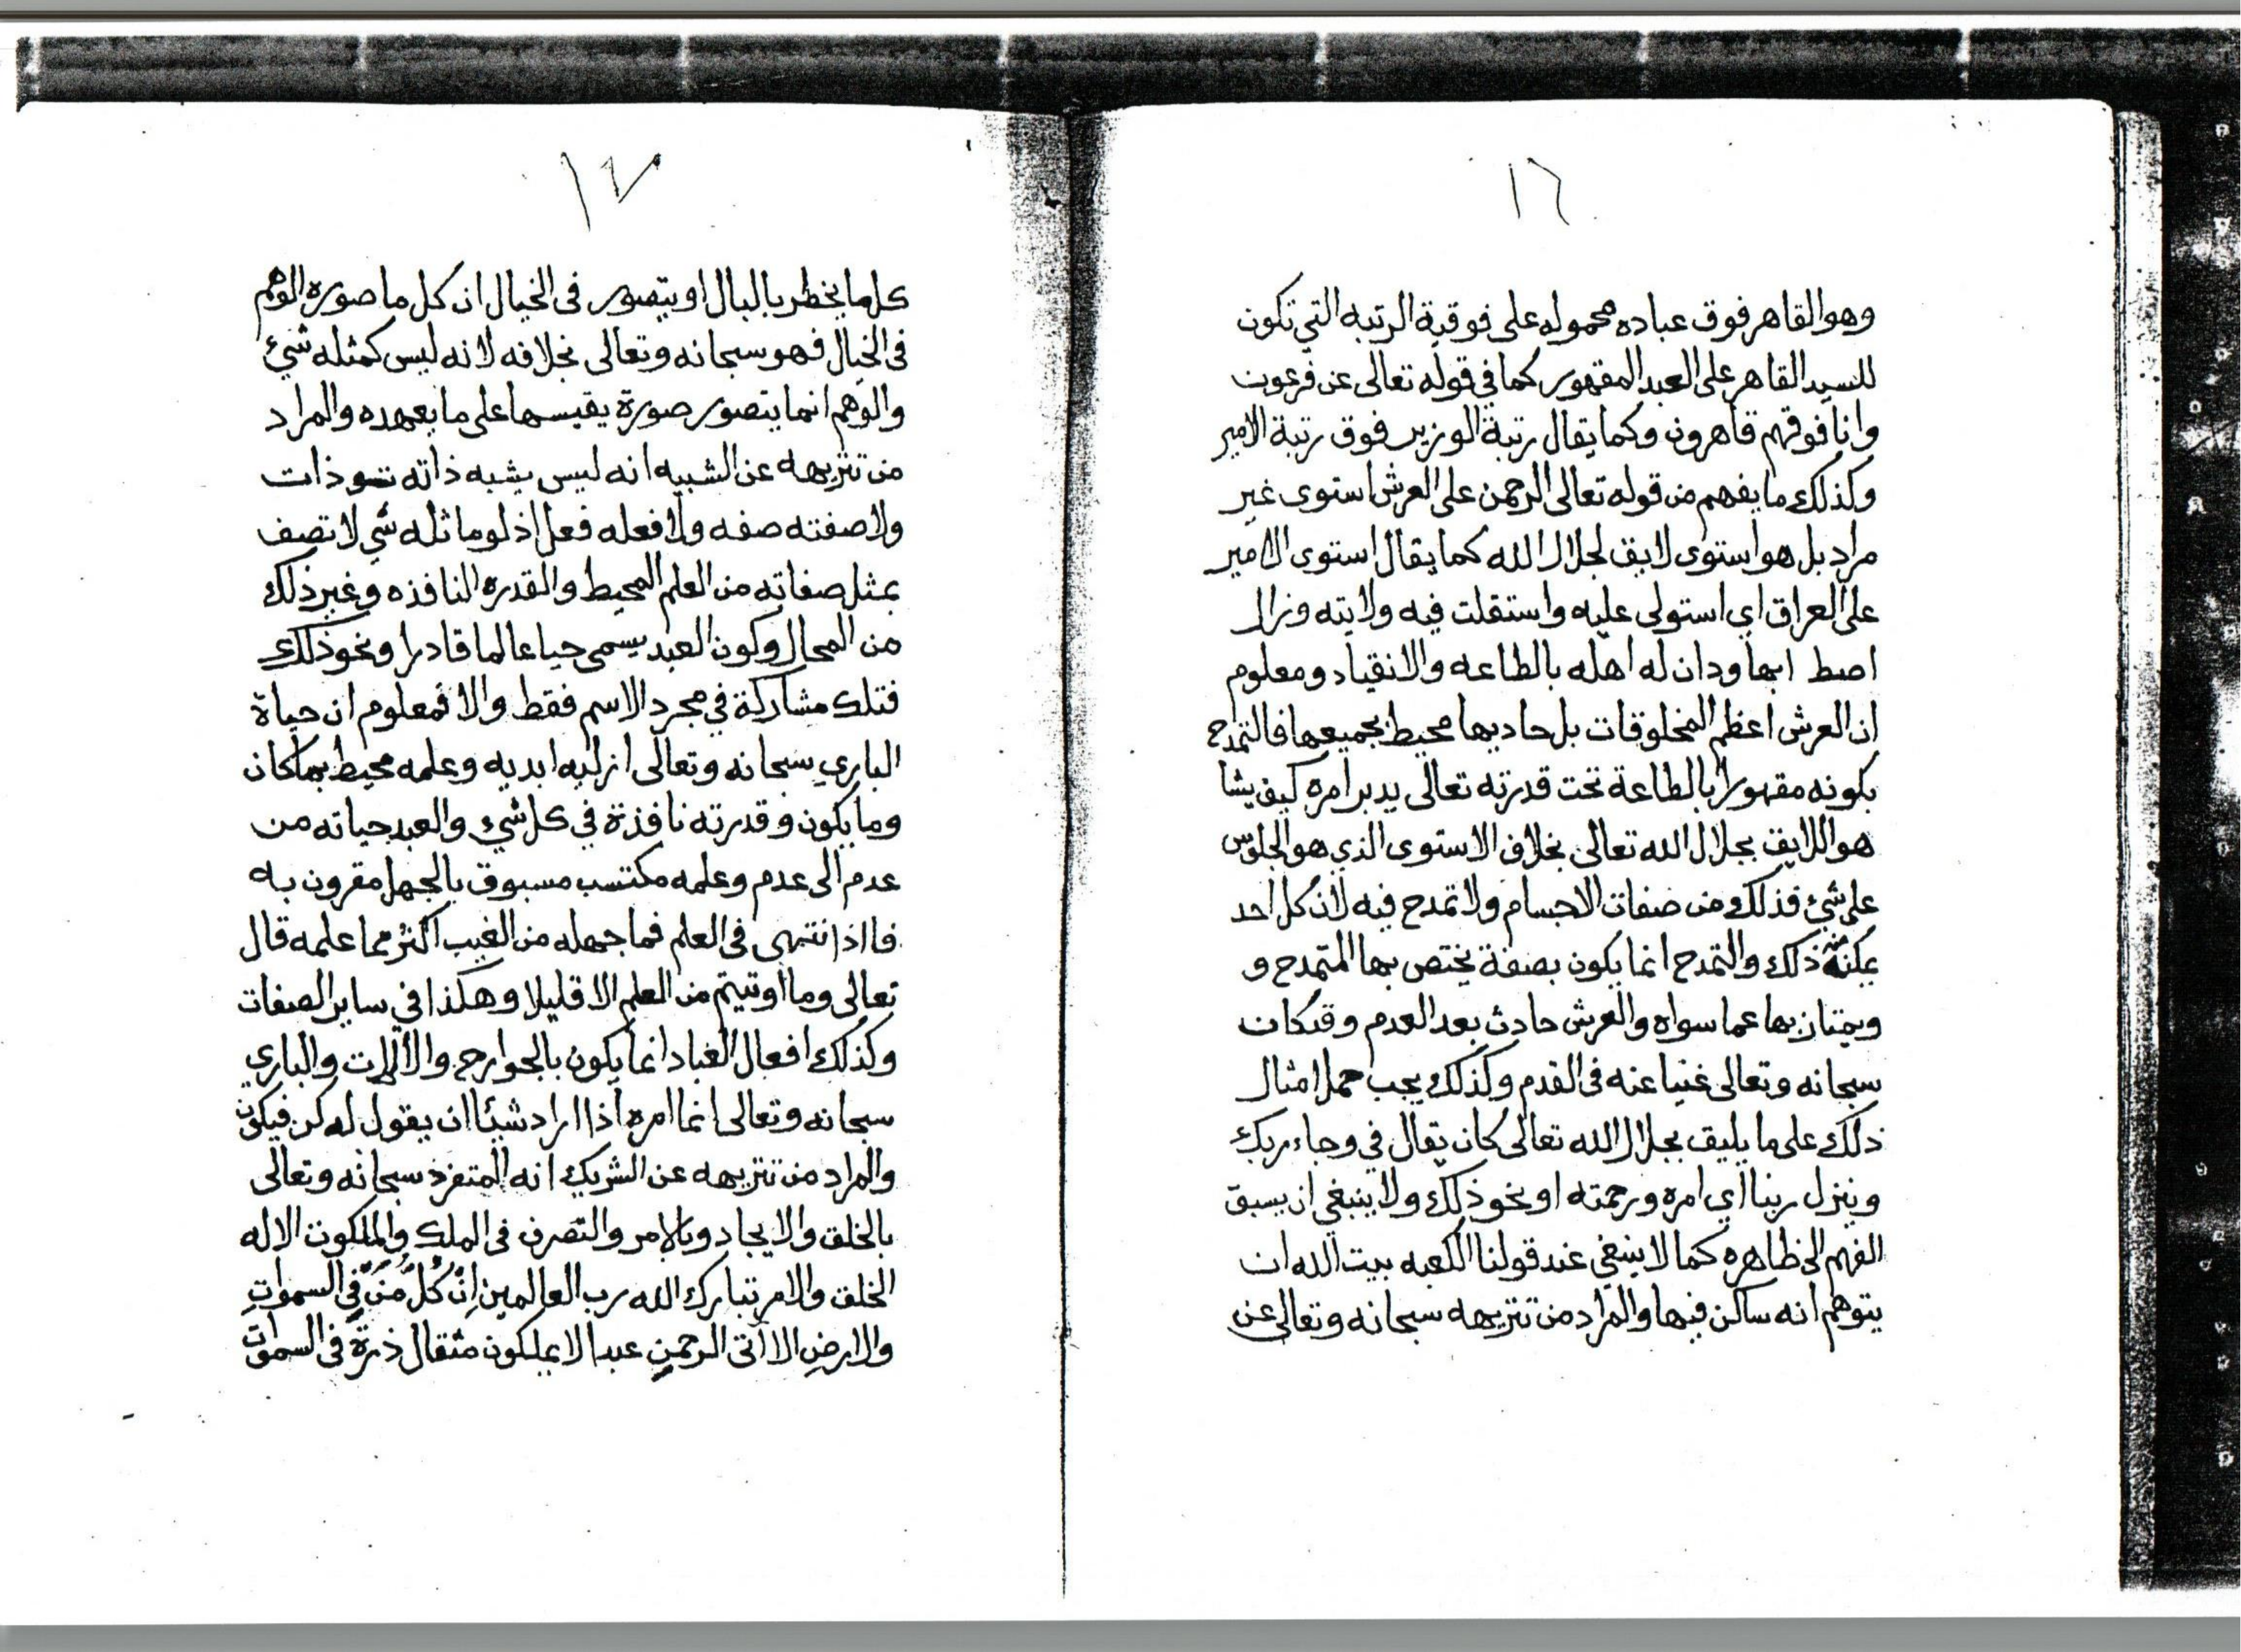 ١٦
وهو القاهر فوق عباده محموله على فوقية الرتبه التي تكون
للسيد القاهر على العبد المقهور كما في قوله تعالى عن فرعون
وانا فوقهم قاهرون وكما يقال رتبة الوزير فوق رتبة الامير
وكذلك ما يفهم من قوله تعالى الرحمن على العرش استوى غير
مراد بل هو استوى لايق لجلال الله كما يقال استوى الامير
على العراق اي استولى عليه واستقلت فيه ولايته وزال
اضط ابها ودان له اهله بالطاعه والانقياد ومعلوم
ان العرش اعظم المخلوقات بل حاديها محيط بجميعها فالتمدح
بكونه مقهورا بالطاعة تحت قدرته تعالى يدبر امره كيف يشا
هو اللايق بجلال الله تعالى بخلاف الاستوى الذي هو الجلوس
على شيء فذلك من صفات الاجسام ولا تمدح فيه لان كل احد
يمكنه ذلك والتمدح انما يكون بصفة يختص بها المتمدح و
ويمتاز بها عما سواه والعرش حادث بعد العدم وقد كان
سبحانه وتعالى غنيا عنه في القدم وكذلك يجب حمل امثال
ذلك على ما يليق بجلال الله تعالى كان يقال في وجاء ربك
وينزل ربنا اي امره ورحمته او نحو ذلك ولا ينبغي ان يسبق
الفهم الى ظاهره كما لا ينبغي عند قولنا الكعبه بيت الله ان
يتوهم انه ساكن فيها والمراد من تنزيهه سبحانه وتعالى عن
١٧
كلما يخطر بالبال او يتصور في الخيال ان كل ما صوره الوهم
في الخيال فهو سبحانه وتعالى بخلافه لانه ليس كمثله شيئ
والوهم انما يتصور صورة يقيسها على ما يعهده والمراد
من تنزيهه عن الشبيه انه ليس يشبه ذاته ذات
ولا صفته صفه ولا فعله فعل اذ لو ماثله شي لاتصف
بمثل صفاته من العلم المحيط والقدره النافذه وغير ذلك
من المحال وكون العبد يسمى حيا عالما قادرا ونحو ذلك
فتلك مشاركة في مجرد الاسم فقط والا فمعلوم ان حياة
الباري سبحانه وتعالى ازليه ابديه وعلمه محيط بما كان
وما يكون وقدرته نافذة في كل شيء والعبد حياته من
عدم الى عدم وعلمه مكتسب مسبوق بالجهل مقرون به
فااذا انتهى في العلم فما جهله من الغيب اكثر مما علمه قال
تعالى وما اوتيتم من العلم الا قليلا وهكذا في ساير الصفات
وكذلك افعال العباد انما يكون بالجوارح والآلات والباري
سبحانه وتعالى انما امره اذا اراد شيئا ان يقول له كن فيكون
والمراد من تنزيهه عن الشريك انه المتفرد سبحانه وتعالى
بالخلق والايجاد وبالامر والتصرف في الملك والملكوت الا له
الخلق والامر تبارك الله رب العالمين اِنْ كُلُّ مَنْ فِي السموات
والارضِ الا اتى الرحمن عبدا لا يملكون مثقال ذرة في السموات